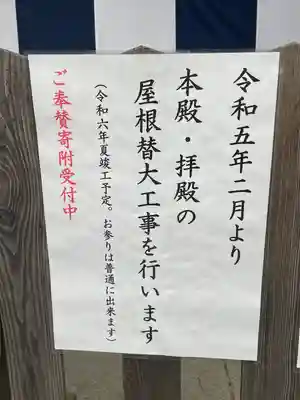 令和五年二月より
本殿・拝殿の
屋根替大工事を行います
(令和六年夏竣工予定。お参りは普通に出来ます)
ご奉賛寄附受付中